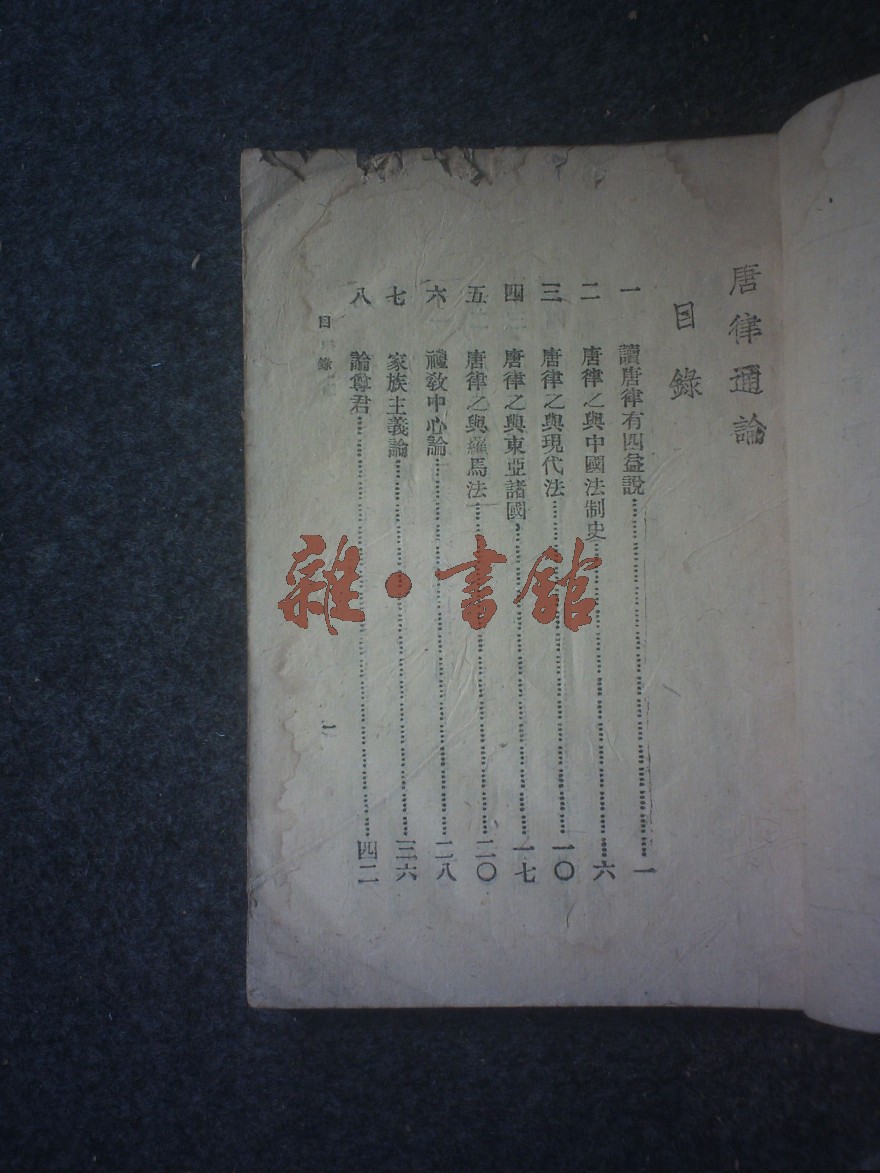 唐律通論
目錄
一 讀唐律有四益說 一
二 唐律之與中國法制史 六
三 唐律之與現代法 一〇
四 唐律之與東亞諸國 一七
五 唐律之與羅馬法 二〇
六 禮教中心論 二八
七 家族主義論 三六
八 論尊君 四二
目錄
一
雜·書館